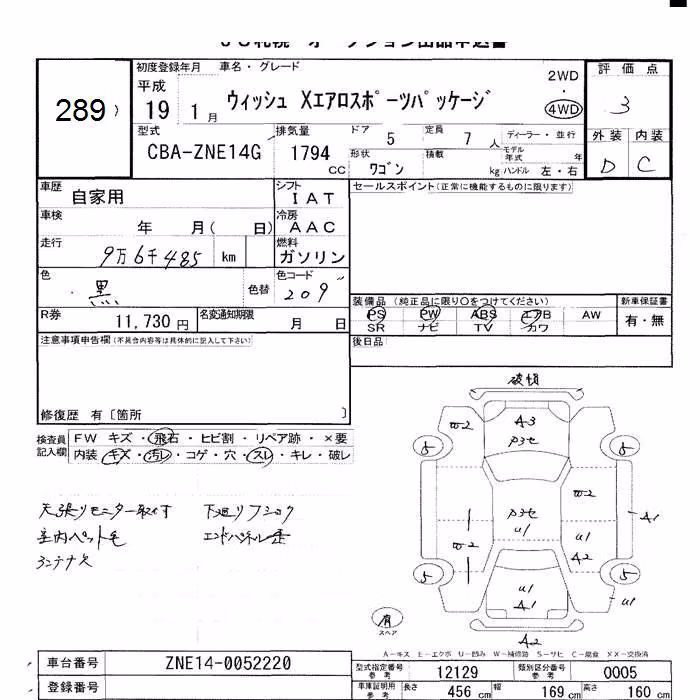 JU札幌 オークション出品申込書
289
初度登録年月 車名・グレード
平成 19 1月
ウィッシュ Xエアロスポーツパッケージ
2WD
4WD
評価点
3
外装 内装
D C
型式 排気量 ドア 定員 ディーラー・並行
CBA-ZNE14G 1794 CC 5 7人
モデル年式 年
形状 積載 kg ハンドル 左・右
ワゴン
車歴 自家用
シフト IAT
車検 年 月( 日)
冷房 AAC
走行 9万6千485 km
燃料 ガソリン
色 黒 色替
色コード 209
R券 11,730円 名変通知期限 月 日
セールスポイント(正常に機能するものに限ります)
装備品 (純正品に限り○をつけてください)
PS PW ABS エアB AW
SR ナビ TV カワ
新車保証書
有・無
後日品
注意事項申告欄(不具合内容等は具体的に記入して下さい)
修復歴 有〔箇所 〕
検査員記入欄
FW キズ・飛石・ヒビ割・リペア跡・×要
内装・キズ・汚レ・コゲ・穴・スレ・キレ・破レ
天張りモニター取付
室内ペット毛
コンテナ欠
下廻りフショク
エンドパネル歪
破損
A・3
P3セ
W・2
5
5
P3セ
U1
W・2
W2
A・1
U1
A2
5
5
U1
A・1
U1
A2
有
スペア
A-キズ E-エクボ U-凹み W-補修跡 S-サビ C-腐食 XX-交換済
車台番号 ZNE14-0052220
登録番号
型式指定番号 参考 12129
類別区分番号 参考 0005
車庫証明用 参考 長さ 456 cm 幅 169 cm 高さ 160 cm